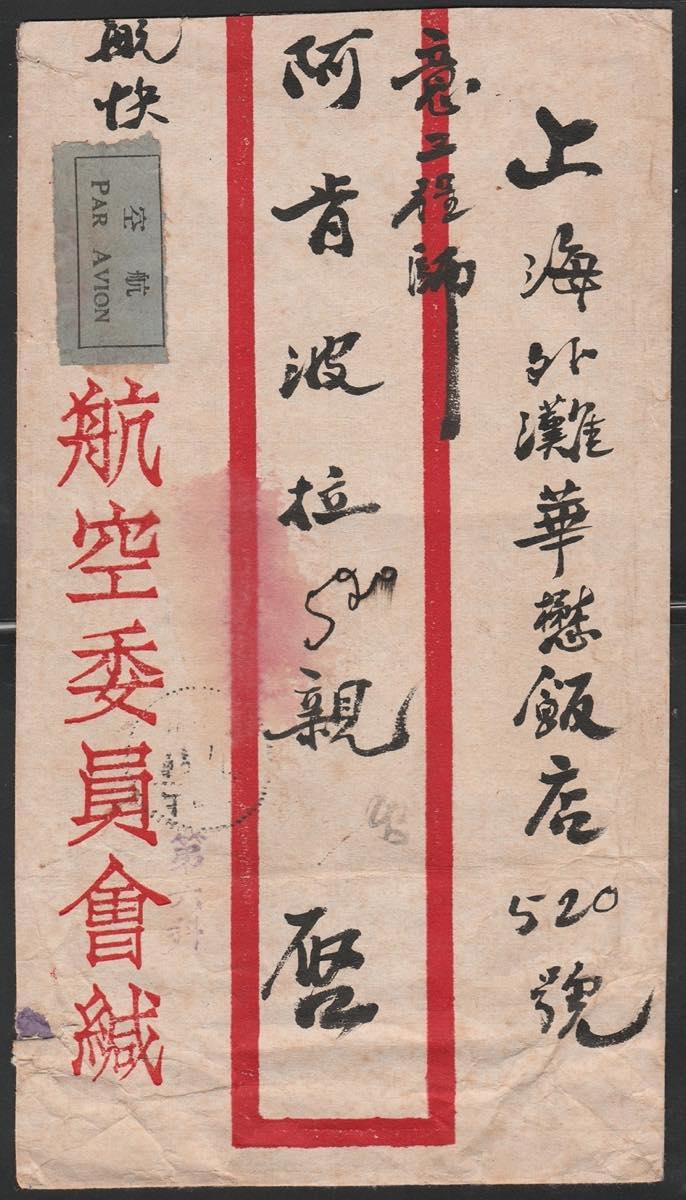 上海外灘華懋飯店520號
意工程師
阿肯波拉親啓
航快
航空
PAR AVION
航空委員會緘